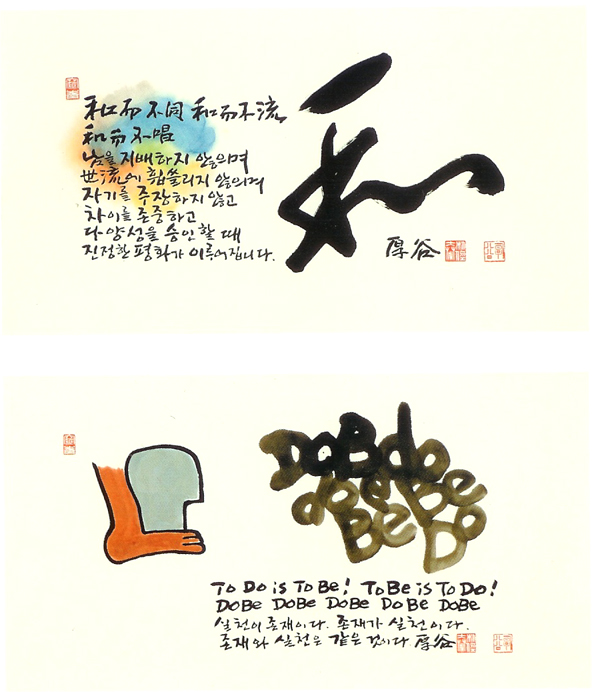 和而 不同 和而不流
和而不唱
남을 지배하지 않으며
世流에 휩쓸리지 않으며
자기를 주장하지 않고
차이를 존중하고
다양성을 승인할 때
진정한 평화가 이루어집니다.
和
厚谷
DoBedo
doBeBe
BeDo
To Do is To Be! To Be is To Do!
DOBe DOBe DOBe DOBe DOBe
실천이 존재이다. 존재가 실천이다.
존재와 실천은 같은 것이다 厚谷